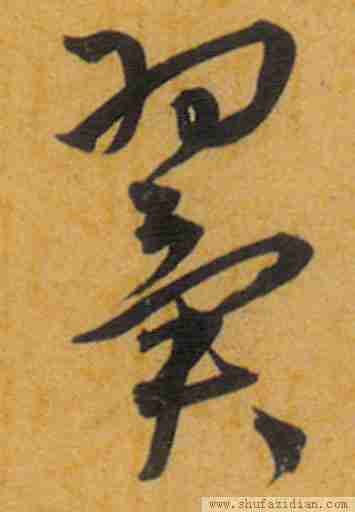 翼
www.shufazidian.com